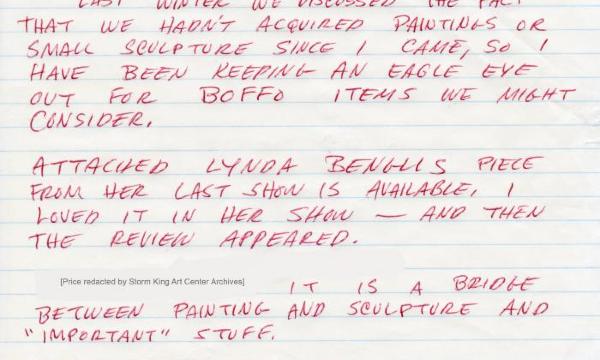 LAST WINTER WE DISCUSSED THE FACT
THAT WE HADN'T ACQUIRED PAINTINGS OR
SMALL SCULPTURE SINCE I CAME, SO I
HAVE BEEN KEEPING AN EAGLE EYE
OUT FOR BOFFO ITEMS WE MIGHT
CONSIDER.
ATTACHED LYNDA BENGLIS PIECE
FROM HER LAST SHOW IS AVAILABLE, I
LOVED IT IN HER SHOW — AND THEN
THE REVIEW APPEARED.
[Price redacted by Storm King Art Center Archives] IT IS A BRIDGE
BETWEEN PAINTING AND SCULPTURE AND
"IMPORTANT" STUFF.